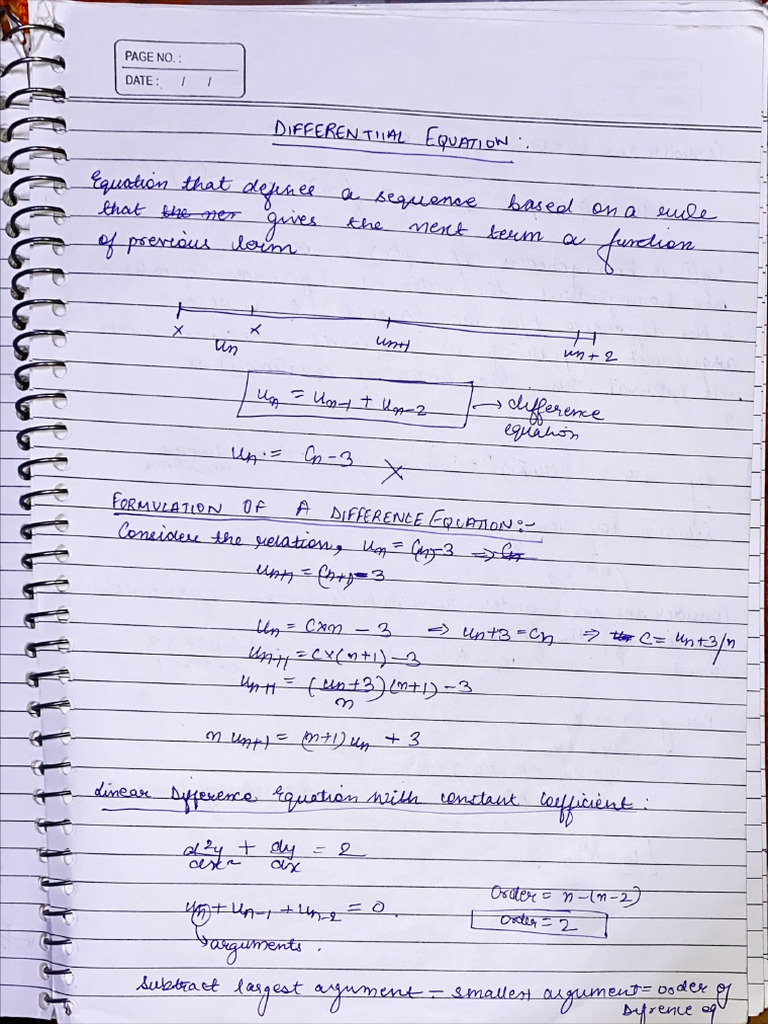 PAGE NO. :
DATE : / /
DIFFERENTIIAL EQUATION :.
Equation that defines a sequence based on a rule
that the nex gives the next term a function
of previous term
x x
un un+1 un+2
un = un-1 + un-2 → difference
equation
un = Cn - 3 X
FORMULATION OF A DIFFERENCE EQUATION:-
Consider the relation, un = C(n)-3 ⇒ Cn
un+1 = C(n+1)-3
un = C×n - 3 ⇒ un+3 = Cn ⇒ C = un+3/n
un+1 = C×(n+1) - 3
un+1 = (un+3)/n (n+1) - 3
n un+1 = (n+1) un + 3
Linear Difference Equation with constant Coefficient :
d²y/dx² + dy/dx = 2
un + un-1 + un-2 = 0.
Order = n-(n-2)
Order = 2
arguments.
Subtract largest argument - smallest argument = order of
difrence eq